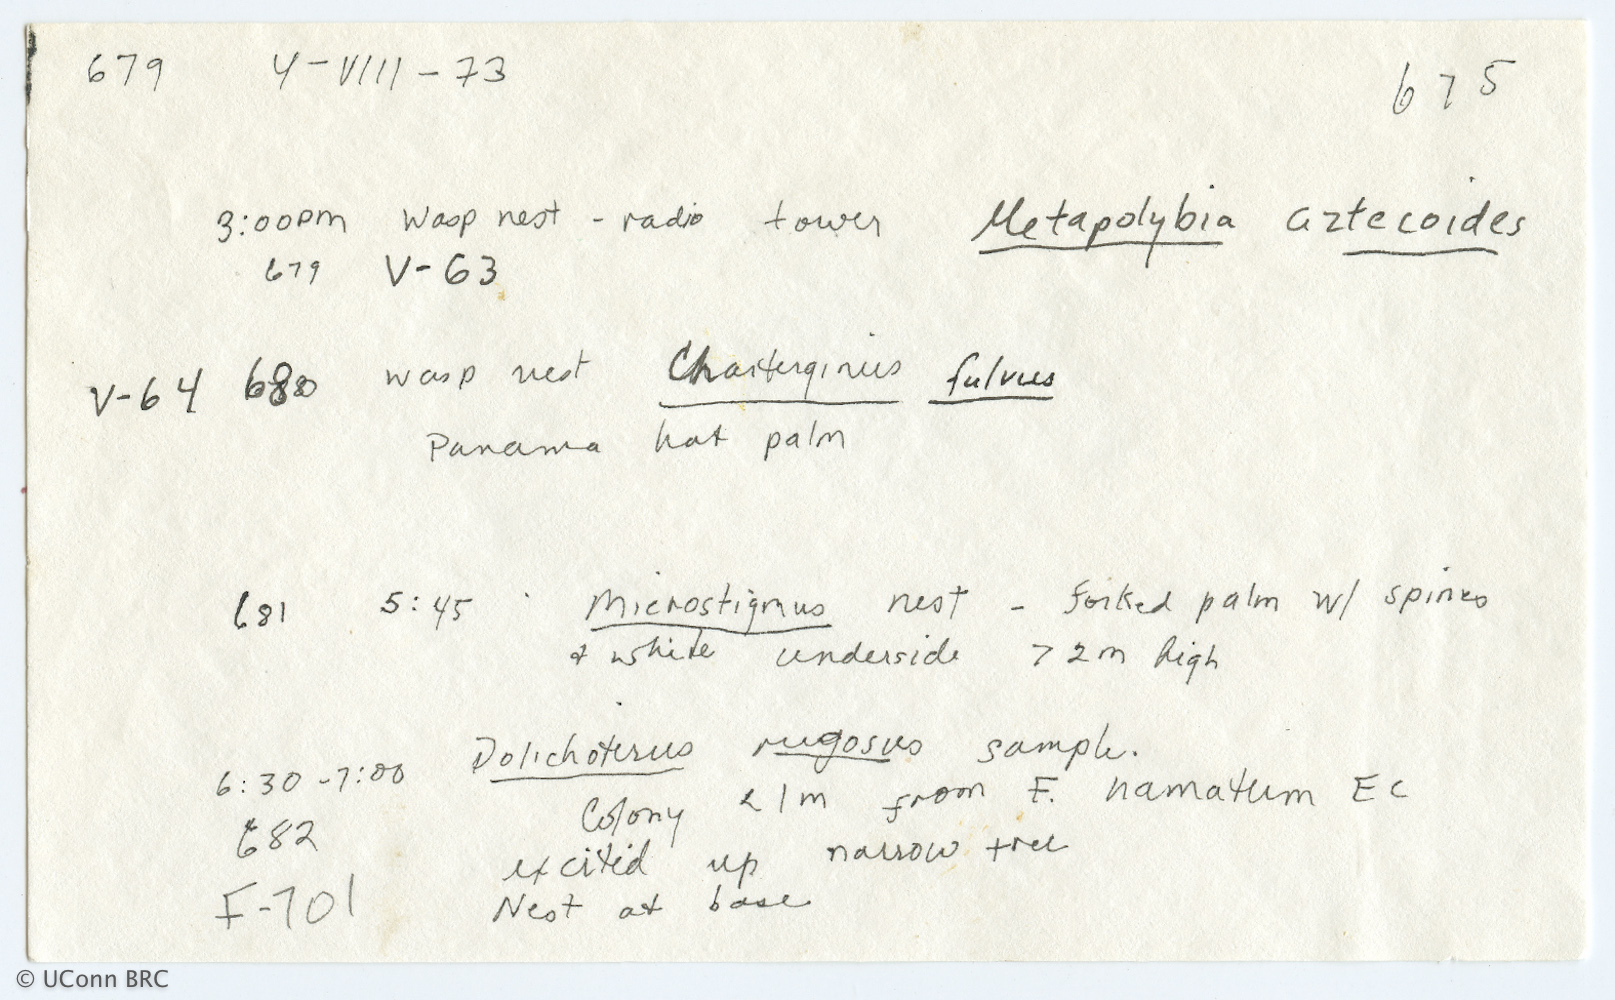 679 4-VIII-73 675
3:00pm Wasp nest - radio tower Metapolybia aztecoides
679 V-63
V-64 680 wasp nest Charterginus fulvus
Panama hat palm
681 5:45 Microstigmus nest - forked palm w/ spines
& white underside >2m high
6:30-7:00 Dolichoterus rugosus sample.
682 Colony <1m from E. hamatum EC
excited up narrow tree
F-701 Nest at base
© UConn BRC